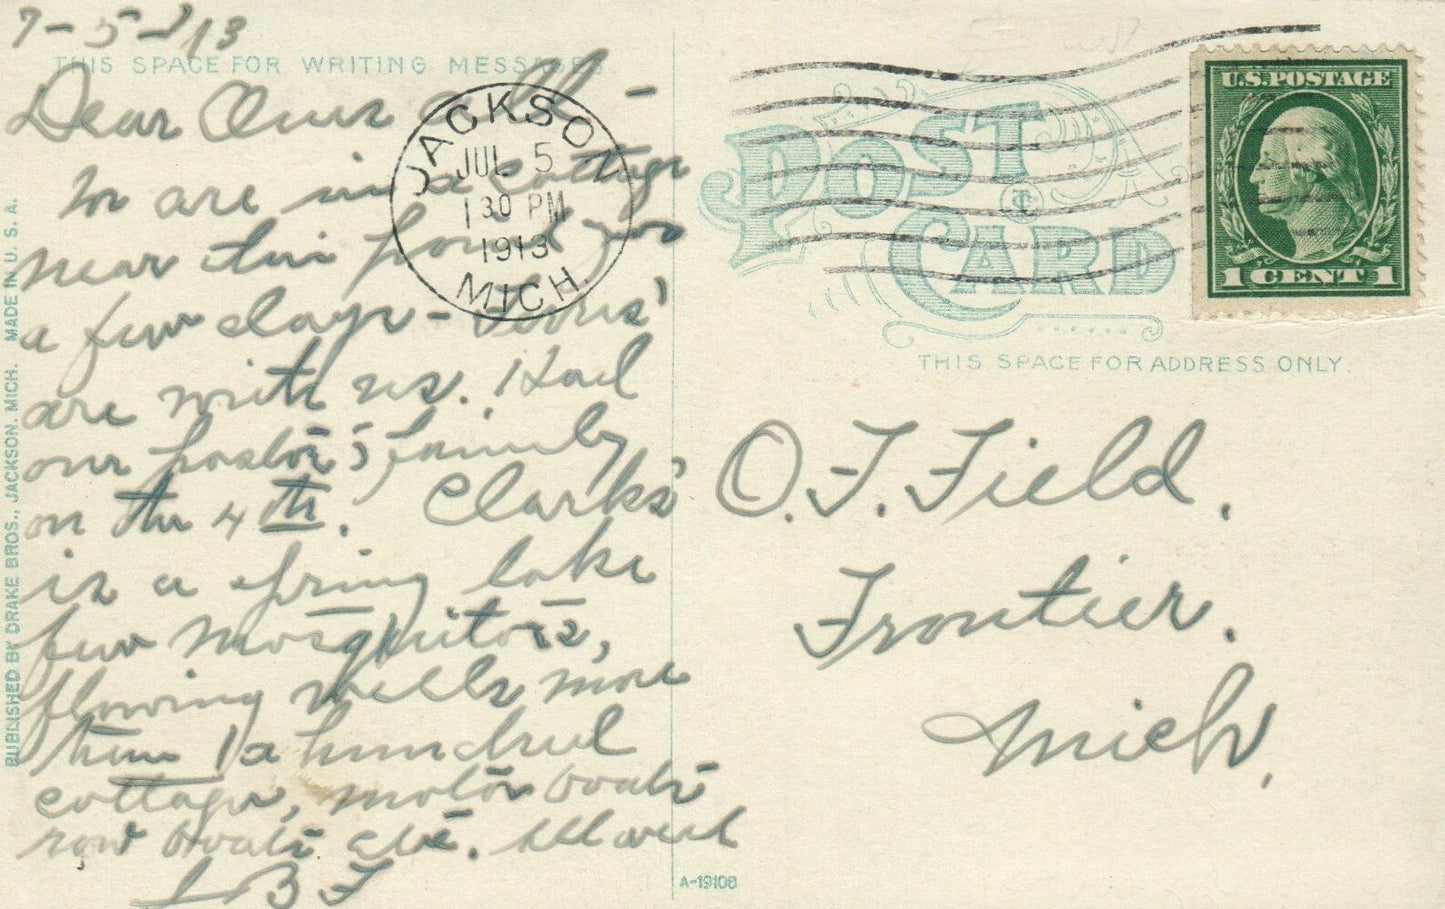 7-5-'13
THIS SPACE FOR WRITING MESSAGES
Dear Ones all -
We are in a cottage
near this pond for
a few days -
are with us. Had
our pastor's family
on the 4th. Clarks'
is a spring lake
few mosquitoes,
flowing wells more
than 1 a hundred
cottages, motor boats
row boats etc. All well
L B F
JACKSON
JUL 5
1 30 PM
1913
MICH.
POST
CARD
U.S. POSTAGE
1 CENT 1
THIS SPACE FOR ADDRESS ONLY.
O. F. Field.
Frontier.
Mich.
PUBLISHED BY DRAKE BROS., JACKSON, MICH. MADE IN U. S. A.
A-19108